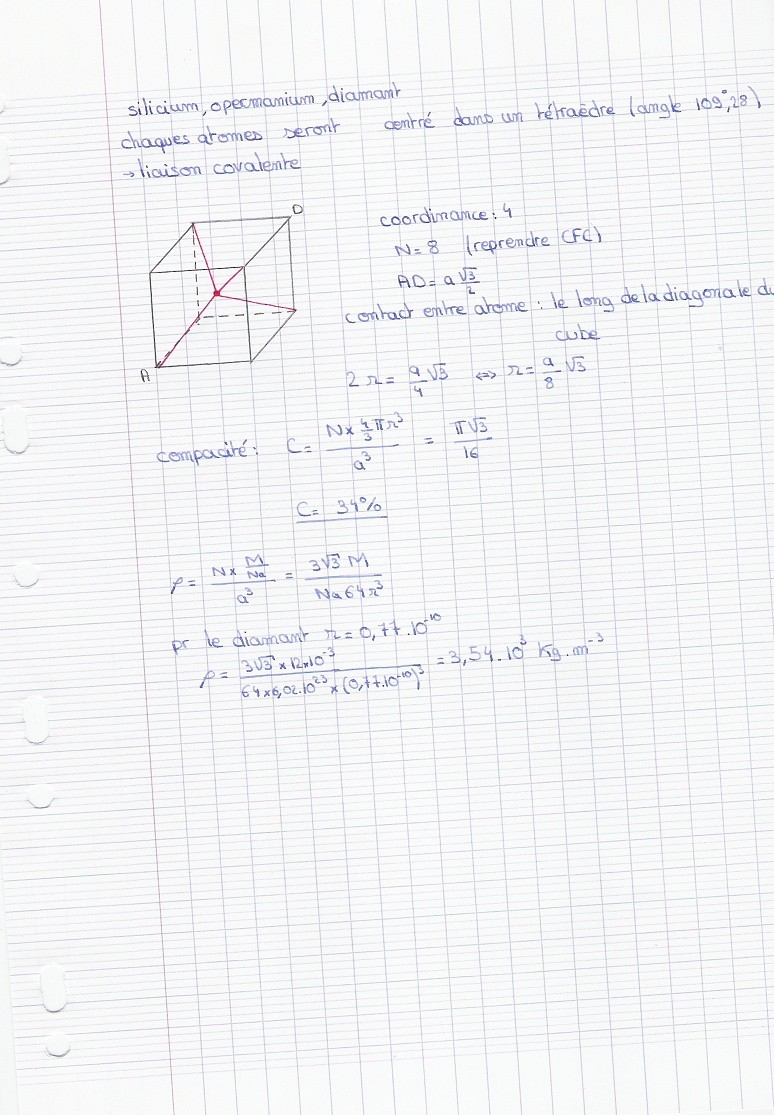 silicium, opermanium, diamant
chaques atomes seront centré dans un tétraèdre (angle 109°,28)
→ liaison covalente
D
coordinance : 4
N = 8 (reprendre CFC)
AD = a √3/2
contact entre atome : le long de la diagonale du
cube
A
2r = a/4 √3 ⇔ r = a/8 √3
compacité : C = (N × 4/3 π r³)/a³ = π√3/16
C = 34%
ρ = (N × M/Na)/a³ = 3√3 M/(Na 64 r³)
pr le diamant r = 0,77.10⁻¹⁰
ρ = (3√3 × 12×10⁻³)/(64 × 6,02.10²³ × (0,77.10⁻¹⁰)³) = 3,54.10³ Kg.m⁻³